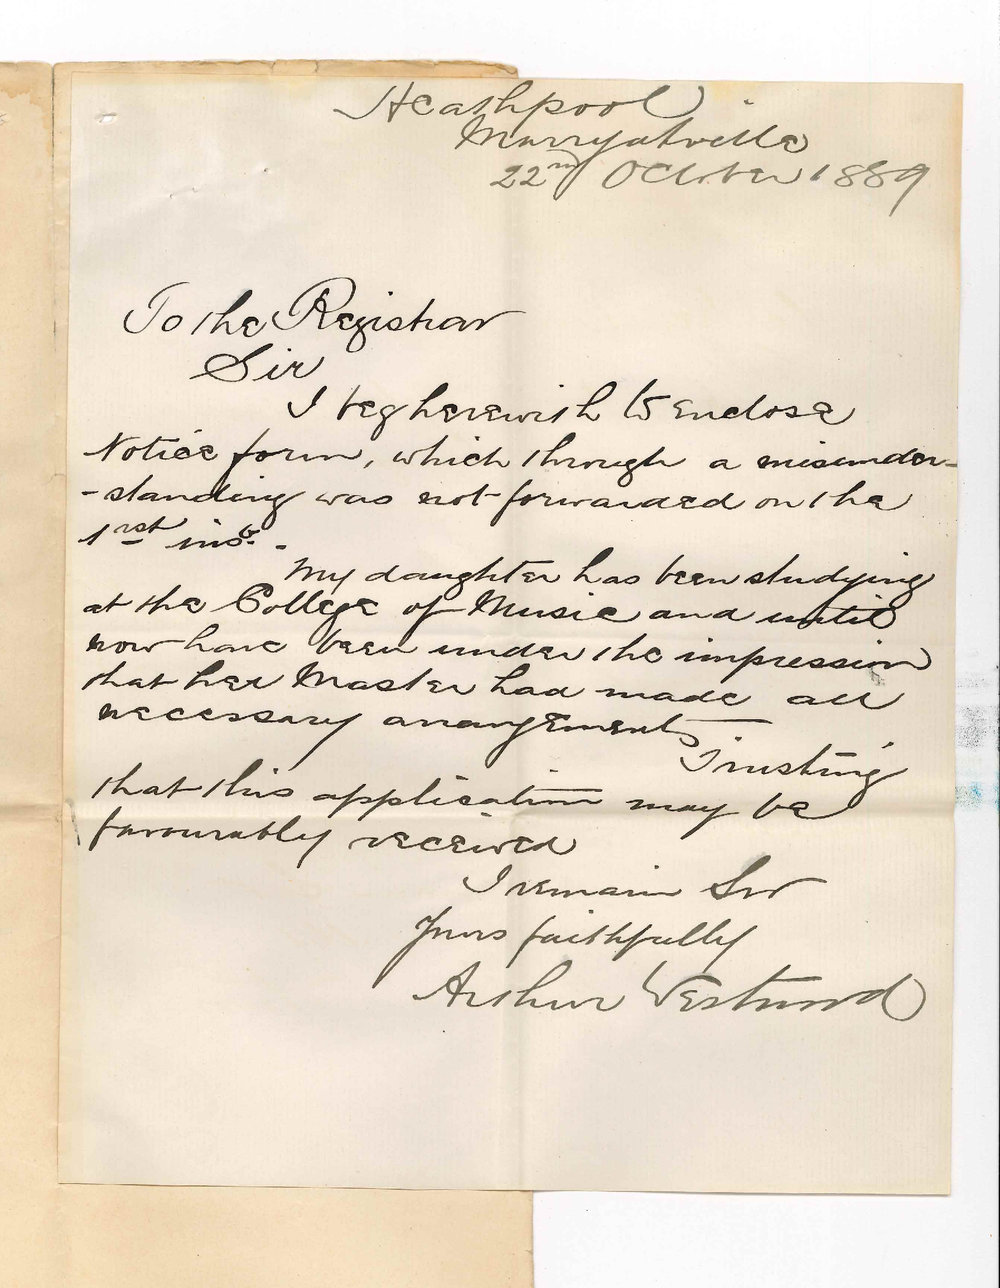 Heathpool
Marryatville
22nd October 1889
To the Registrar
Sir
I beg herewith to enclose
Notice form, which through a misunder-
-standing was not forwarded on the
1rst inst. -
My daughter has been studying
at the College of Music and until
now have been under the impression
that her Master had made all
necessary arrangements
Trusting
that this application may be
favourably received
I remain Sir
Yours faithfully
Arthur Westwood